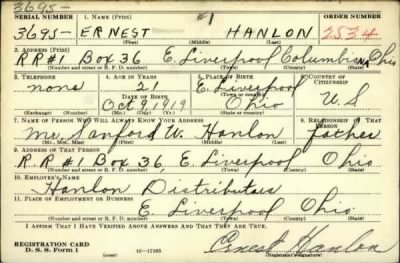 3695-
SERIAL NUMBER 1. NAME (Print) #1 ORDER NUMBER
3695- ERNEST HANLON 2534
(First) (Middle) (Last)
2. ADDRESS (Print)
R R #1 Box 36 E. Liverpool Columbiana Ohio
(Number and street or R. F. D. number) (Town) (County) (State)
3. TELEPHONE 4. AGE IN YEARS 5. PLACE OF BIRTH 6. COUNTRY OF CITIZENSHIP
none 21 E. Liverpool
DATE OF BIRTH
Oct 9 1919 Ohio U.S
(Exchange) (Number) (Mo.) (Day) (Yr.) (State or country)
7. NAME OF PERSON WHO WILL ALWAYS KNOW YOUR ADDRESS 8. RELATIONSHIP OF THAT PERSON
Mr. Sanford W. Hanlon father
(Mr., Mrs., Miss) (First) (Middle) (Last)
9. ADDRESS OF THAT PERSON
R. R #1 Box 36, E. Liverpool Ohio
(Number and street or R. F. D. number) (Town) (County) (State)
10. EMPLOYER'S NAME
Hanlon Distributors
11. PLACE OF EMPLOYMENT OR BUSINESS
E. Liverpool Ohio
(Number and street or R. F. D. number) (Town) (County) (State)
I AFFIRM THAT I HAVE VERIFIED ABOVE ANSWERS AND THAT THEY ARE TRUE.
REGISTRATION CARD
D. S. S. Form 1 Ernest Hanlon
(Registrant's signature)